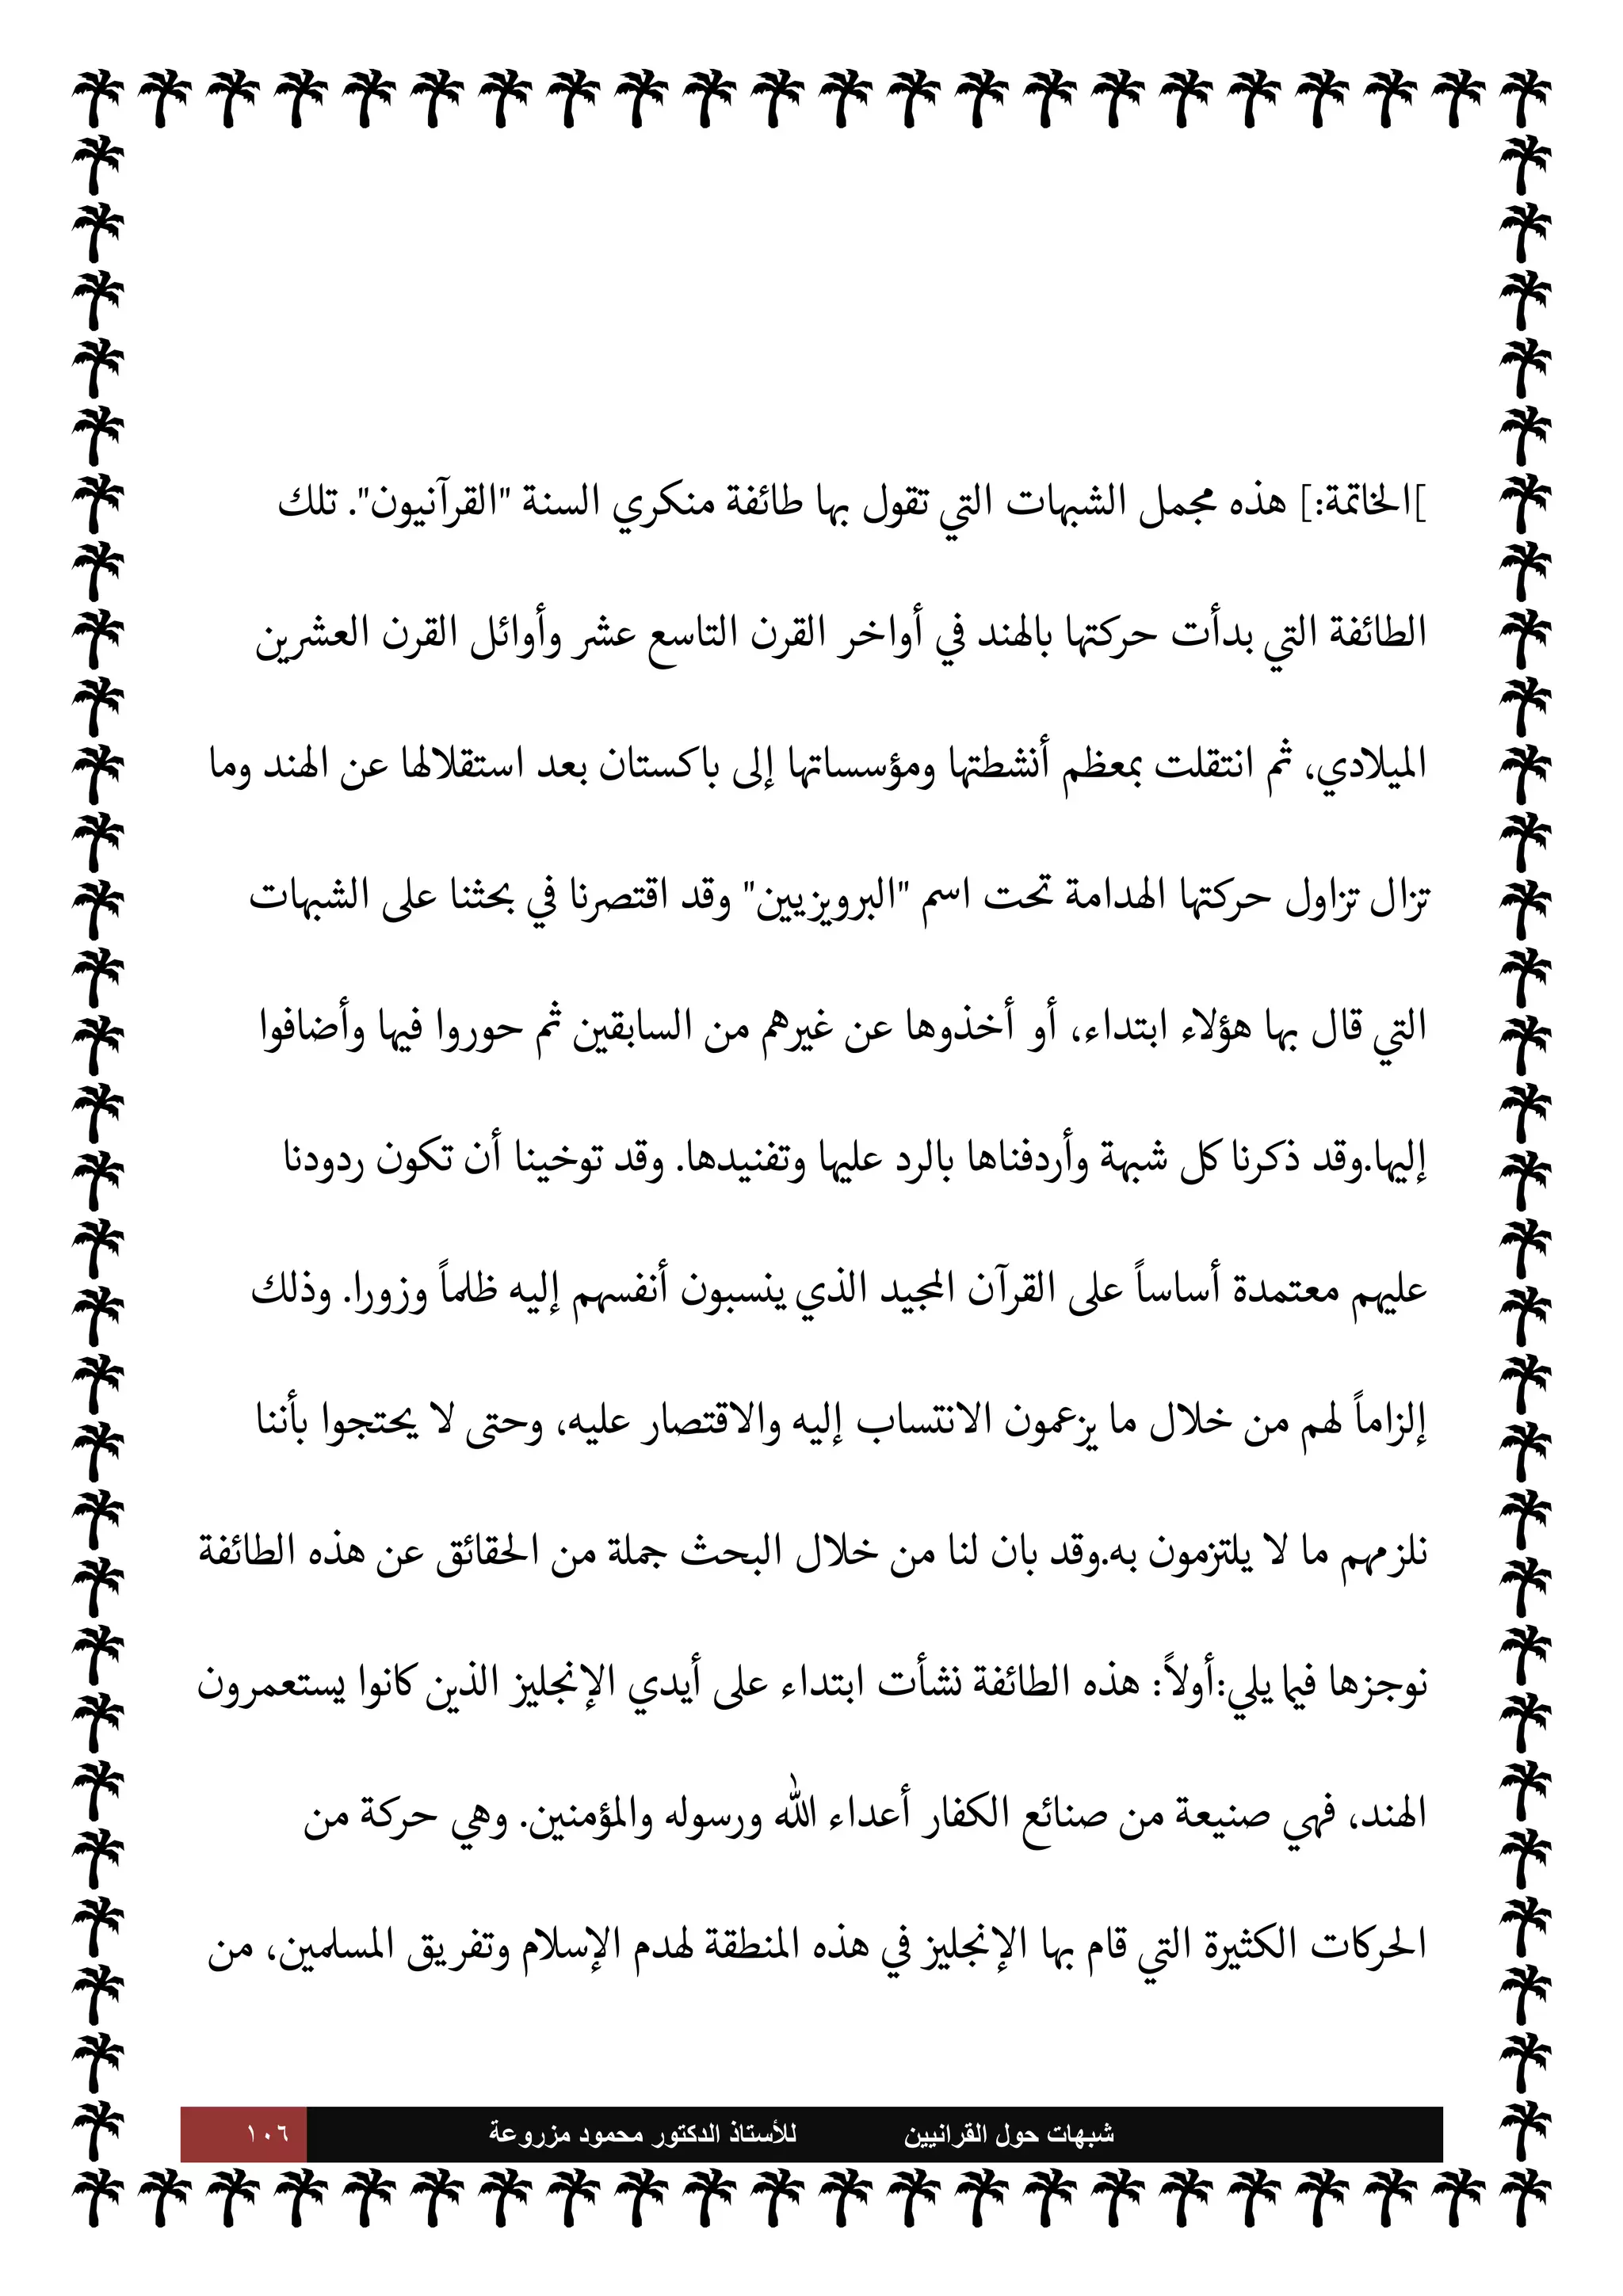 [الخاتمة:] هذه مجمل الشبهات التي تقول بها طائفة منكري السنة "القرآنيون". تلك
الطائفة التي بدأت حركتها بالهند في أواخر القرن التاسع عشر وأوائل القرن العشرين
الميلادي، ثم انتقلت بمعظم أنشطتها ومؤسساتها إلى باكستان بعد استقلالها عن الهند وما
تزال تزاول حركتها الهدامة تحت اسم "البرويزيين" وقد اقتصرنا في بحثنا على الشبهات
التي قال بها هؤلاء ابتداء، أو أخذوها عن غيرهم من السابقين ثم حوروا فيها وأضافوا
إليها.وقد ذكرنا كل شبهة وأردفناها بالرد عليها وتفنيدها. وقد توخينا أن تكون ردودنا
عليهم معتمدة أساساً على القرآن المجيد الذي ينسبون أنفسهم إليه ظلماً وزورا. وذلك
إلزاماً لهم من خلال ما يزعمون الانتساب إليه والاقتصار عليه، وحتى لا يحتجوا بأننا
نلزمهم ما لا يلتزمون به.وقد بان لنا من خلال البحث جملة من الحقائق عن هذه الطائفة
نوجزها فيما يلي:أولاً: هذه الطائفة نشأت ابتداء على أيدي الإنجليز الذين كانوا يستعمرون
الهند، فهي صنيعة من صنائع الكفار أعداء الله ورسوله والمؤمنين. وهي حركة من
الحركات الكثيرة التي قام بها الإنجليز في هذه المنطقة لهدم الإسلام وتفريق المسلمين، من
شبهات حول القرانيين للأستاذ الدكتور محمود مزروعة ١٠٦